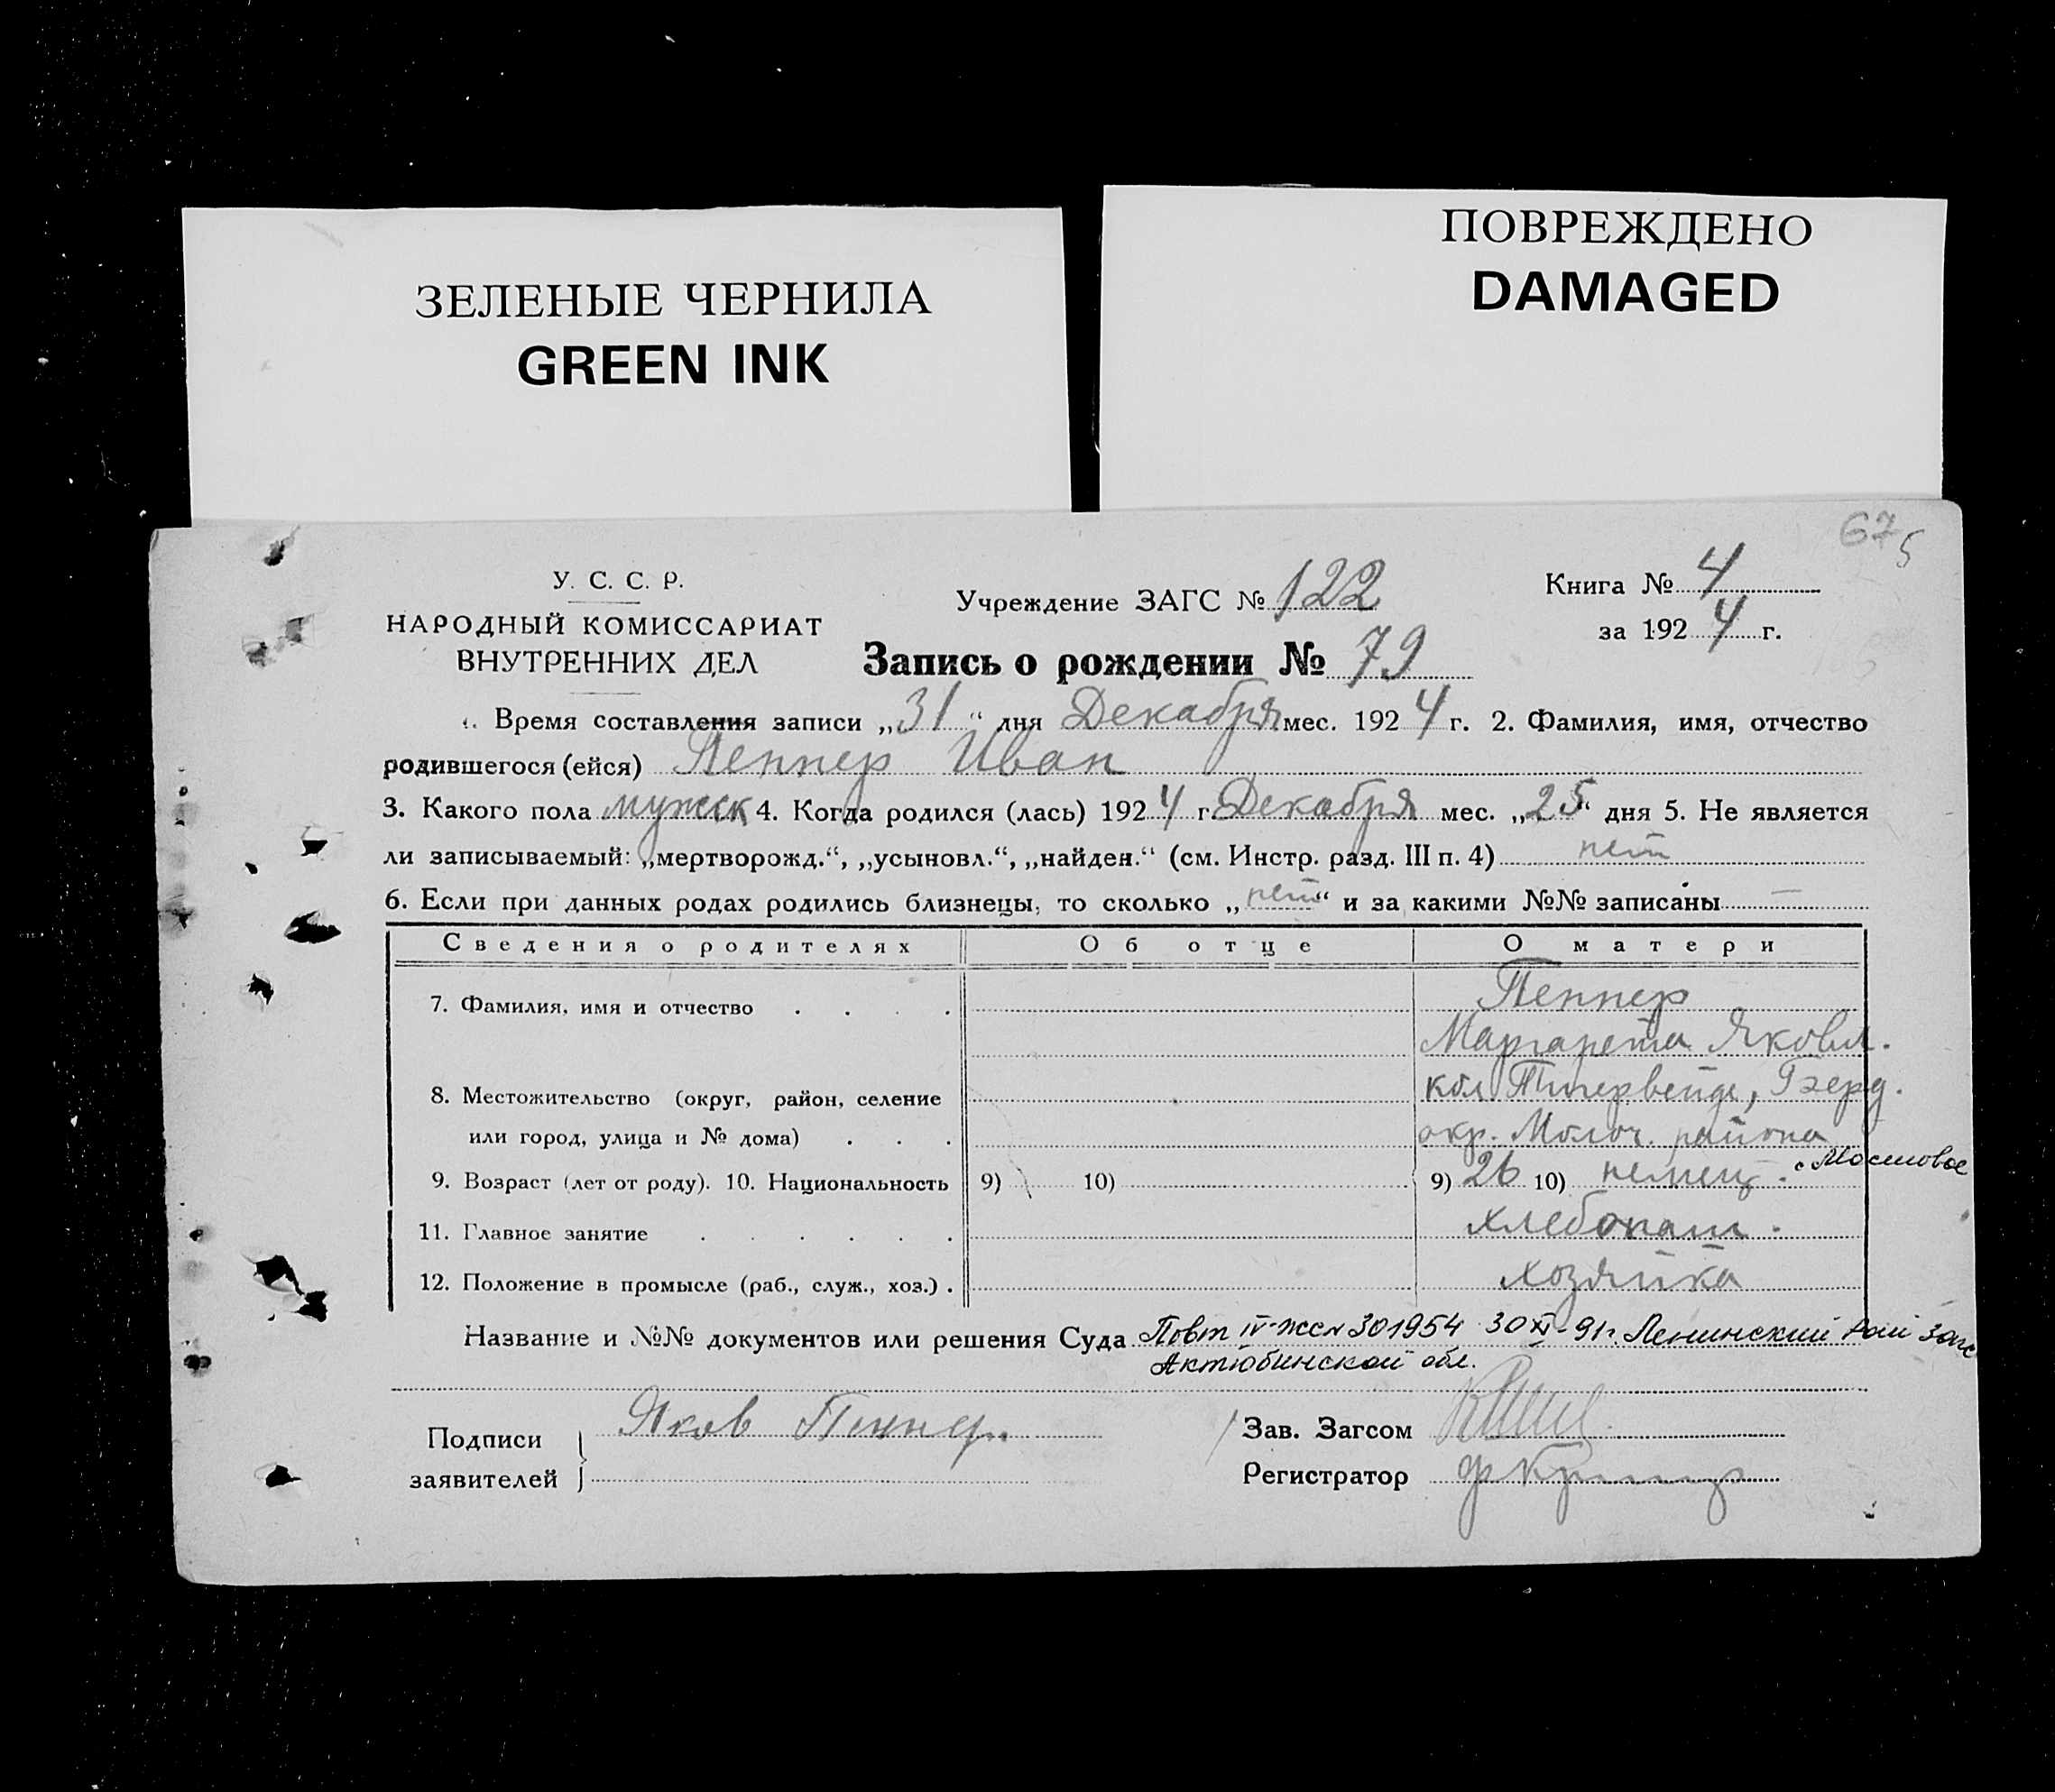 ЗЕЛЕНЫЕ ЧЕРНИЛА
GREEN INK
ПОВРЕЖДЕНО
DAMAGED
67 5
У. С. С. Р.
НАРОДНЫЙ КОМИССАРИАТ
ВНУТРЕННИХ ДЕЛ
Учреждение ЗАГС № 122
Книга № 4
за 1924 г.
Запись о рождении № 79
1. Время составления записи „31“ дня Декабря мес. 1924 г. 2. Фамилия, имя, отчество
родившегося (ейся) Пеннер Иван
3. Какого пола мужск 4. Когда родился (лась) 1924 г Декабря мес. „25“ дня 5. Не является
ли записываемый: „мертворожд.“, „усыновл.“, „найден.“ (см. Инстр. разд. III п. 4) нет
6. Если при данных родах родились близнецы, то сколько „нет“ и за какими №№ записаны —
Сведения о родителях Об отце О матери
7. Фамилия, имя и отчество Пеннер
Маргарета Яковл.
8. Местожительство (округ, район, селение кол.
или город, улица и № дома) окр. Молоч. района
9. Возраст (лет от роду). 10. Национальность 9) 10) 9) 26 10) немец.
11. Главное занятие хлебопаш.
12. Положение в промысле (раб., служ., хоз.) хозяйка
Название и №№ документов или решения Суда Повт IV-жс № 301954 30 XI-91г. Ленинский Рай Загс
Актюбинской обл.
Подписи
заявителей
Яков Пеннер
Зав. Загсом
Регистратор